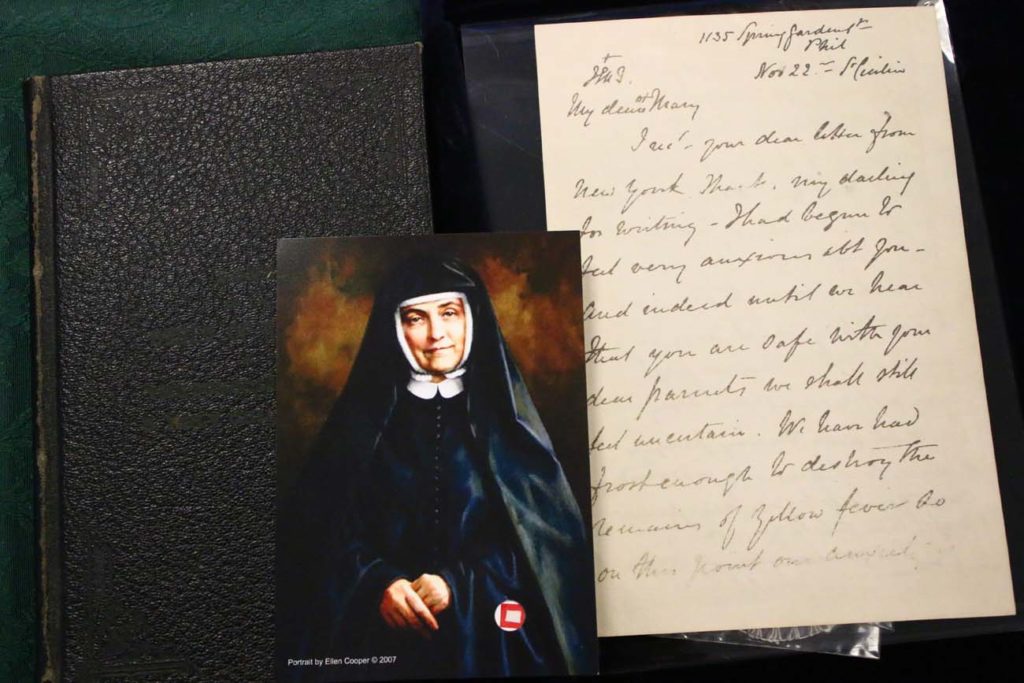 1135 Spring Garden St
Phil
Nov 22nd - St Cecilia
JHS.
My dear Mary
I rec'd - your dear letter from
New York Thank, my darling
for writing - I had begun to
feel very anxious abt you -
And indeed until we hear
that you are safe with your
dear parents we shall still
feel uncertain. We have had
frost enough to destroy the
remains of Yellow fever So
on this point our
Portrait by Ellen Cooper © 2007